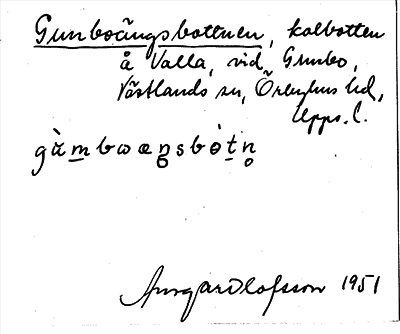 Gunboängsbottnen, kolbotten
å Valla, vid Gunbo,
Västlands sn, Örbyhus hd,
Upps. l.
gὰm̲bωæŋsbòt̲n̥
Ingard Olofsson 1951